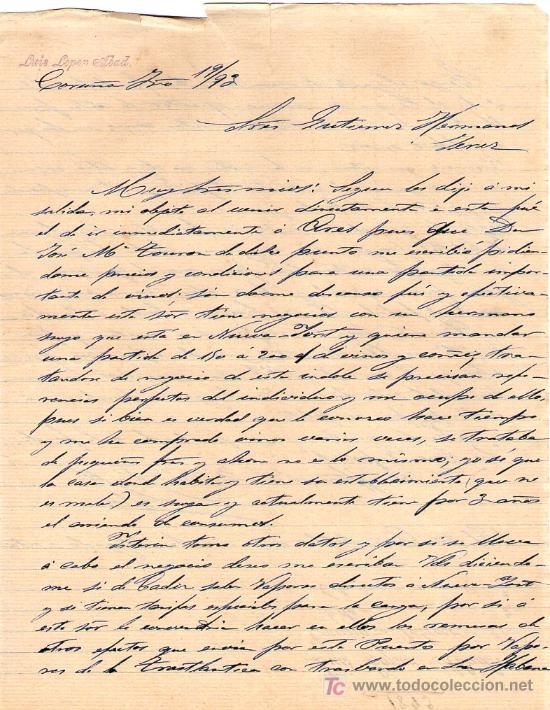 Luis Lopez Abad.
Coruña 19/93
Sres Gutierrez Hermanos
Jerez
Muy Sres mios: Segun les dije á mi
salida, mi objeto al venir directamente a esta fué
el de ir inmediatamente á Ores pues que Don
José Mª Touron de dicho punto me escribió pidien
dome precios y condiciones para una partida impor
tante de vinos; sin descanso fuí y efectiva-
mente este sor tiene negocios con un hermano
suyo que está en Nueva York y quiere mandar
una partida de 150 a 200 de vinos y coñac; tra-
tandose de negocio de esta indole se precisan refe
rencias perfectas del individuo y me ocupo de ello,
pues si bien es verdad que le conozco hace tiempo
y me ha comprado vinos varias veces, se trataba
de pequeños y ahora no es lo mismo; yo sé que
la casa donde habita y tiene su establecimiento, (que no
es mala) es suya y actualmente tiene por 3 años
el arriendo de consumos.
Interin tomo otros datos y por si se lleva
á cabo el negocio deseo me escriban Vds diciendo-
me si de Cadiz sale Vapores directos á Nueva York
y si tienen tarifas especiales para la carga, por si á
este sor le convendria hacer en ellos las remesas de
otros efectos que envia por este Puerto por Vapo-
res de la Trasatlantica con trasbordo en la Habana
TC www.todocoleccion.net